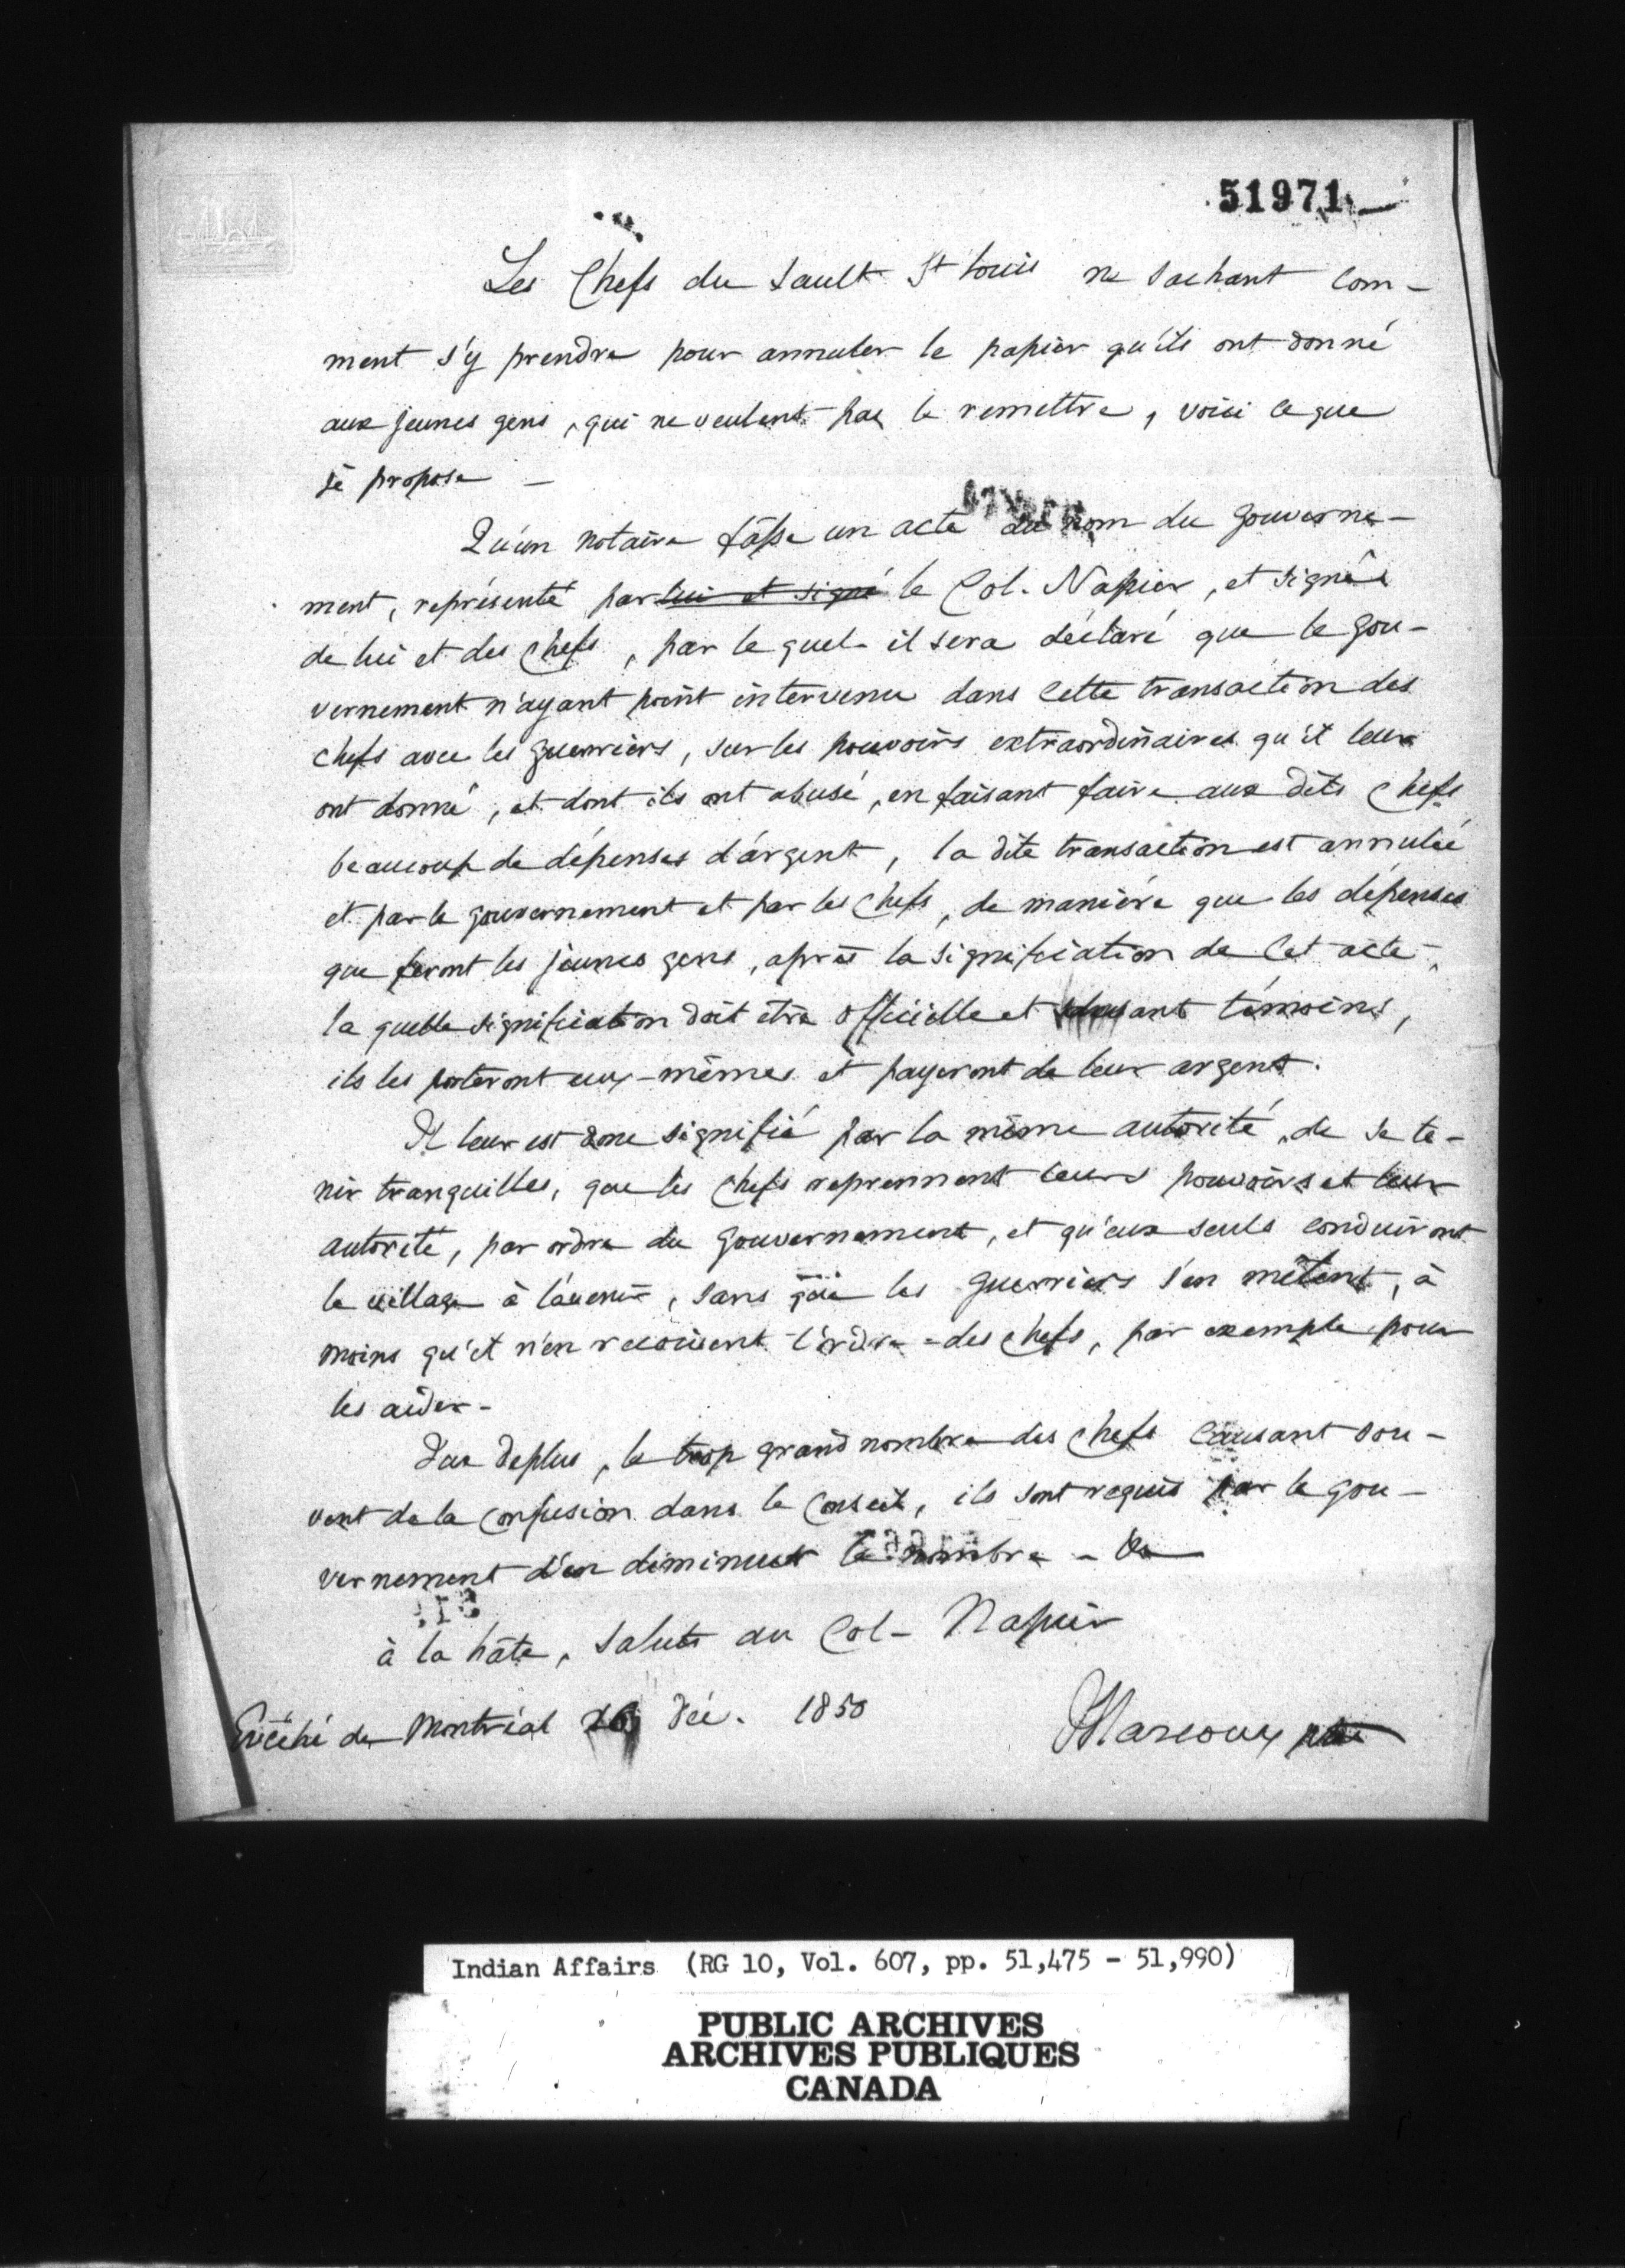 51971
Les Chefs du Sault St Louis ne sachant com-
ment s'y prendre pour annuler le papier qu'ils ont donné
aux jeunes gens, qui ne veulent pas le remettre, voici ce que
je propose -
Qu'un notaire fasse un acte au nom du Gouverne-
ment, représenté par lui et signé le Col. Napier, et signé
de lui et des Chefs, par le quel il sera déclaré que le gou-
vernement n'ayant point intervenu dans cette transaction des
chefs avec les guerriers, sur les pouvoirs extraordinaires qu'il leur
ont donné, et dont ils ont abusé, en faisant faire aux dits Chefs
beaucoup de dépenses d'argent, la dite transaction est annulée
et par le gouvernement et par les Chefs, de manière que les dépenses
que feront les jeunes gens, après la signification de cet acte,
la quelle signification doit être officielle et devant témoins,
ils les porteront eux-mêmes et payeront de leur argent.
Il leur est donc signifié par la même autorité, de se te-
nir tranquilles, que les Chefs reprennent leurs pouvoirs et leur
autorité, par ordre du Gouvernement, et qu'eux seuls conduiront
le village à l'avenir, sans que les guerriers s'en mêlent, à
moins qu'il n'en reçoivent l'ordre des Chefs, par exemple pour
les aider-
de plus, le trop grand nombre des Chefs causant sou-
vent de la confusion dans le Conseil, ils sont requis par le gou-
vernement d'en diminuer le nombre -
à la hâte, saluts au Col- Napier
Evêché de Montréal 26 Déc. 1850
Marcoux ptre
Indian Affairs (RG 10, Vol. 607, pp. 51,475 - 51,990)
PUBLIC ARCHIVES
ARCHIVES PUBLIQUES
CANADA